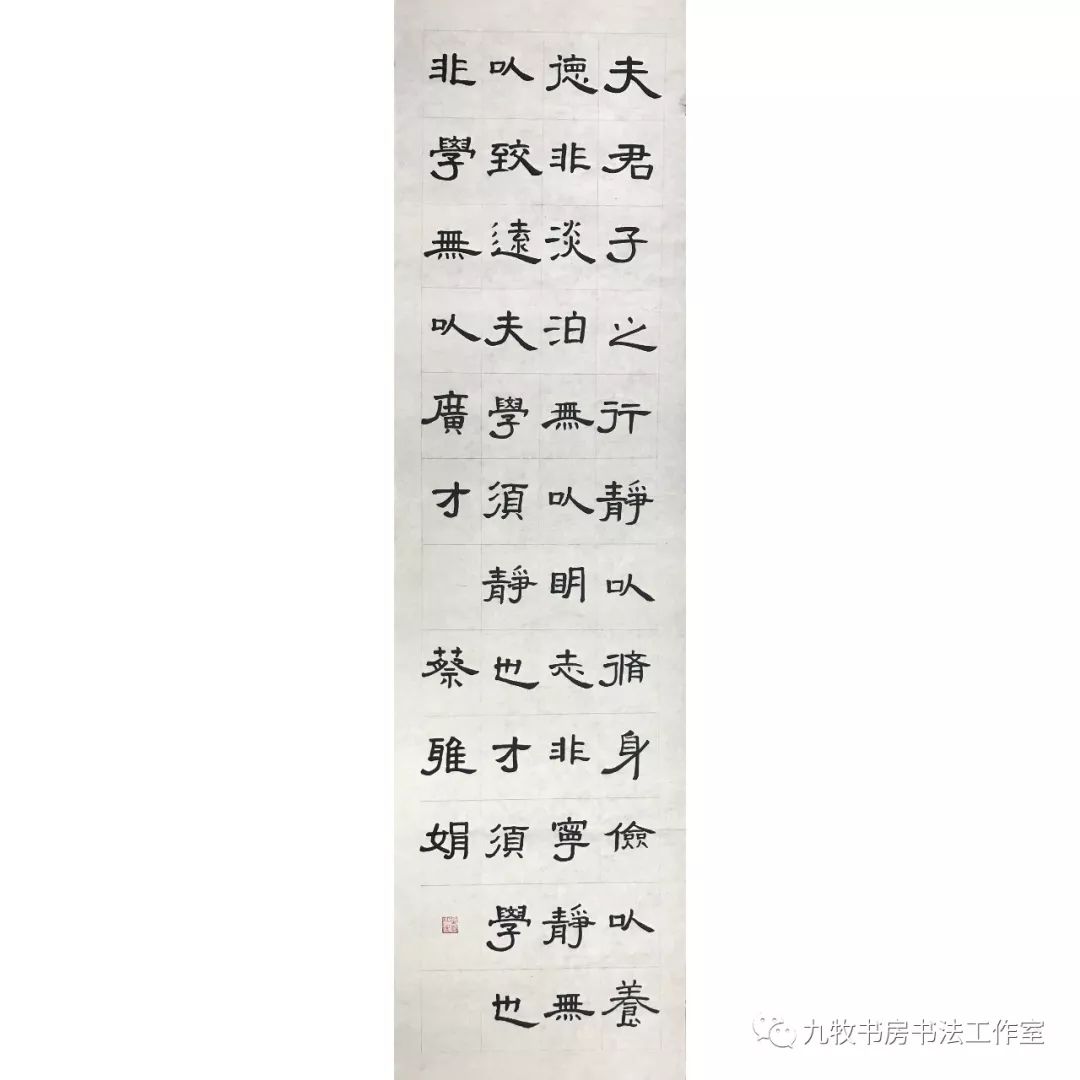 夫君子之行靜以脩身儉以養
德非淡泊無以明志非寧靜無
以致遠夫學須靜也才須學也
非學無以廣才
蔡雅娟
九牧书房书法工作室